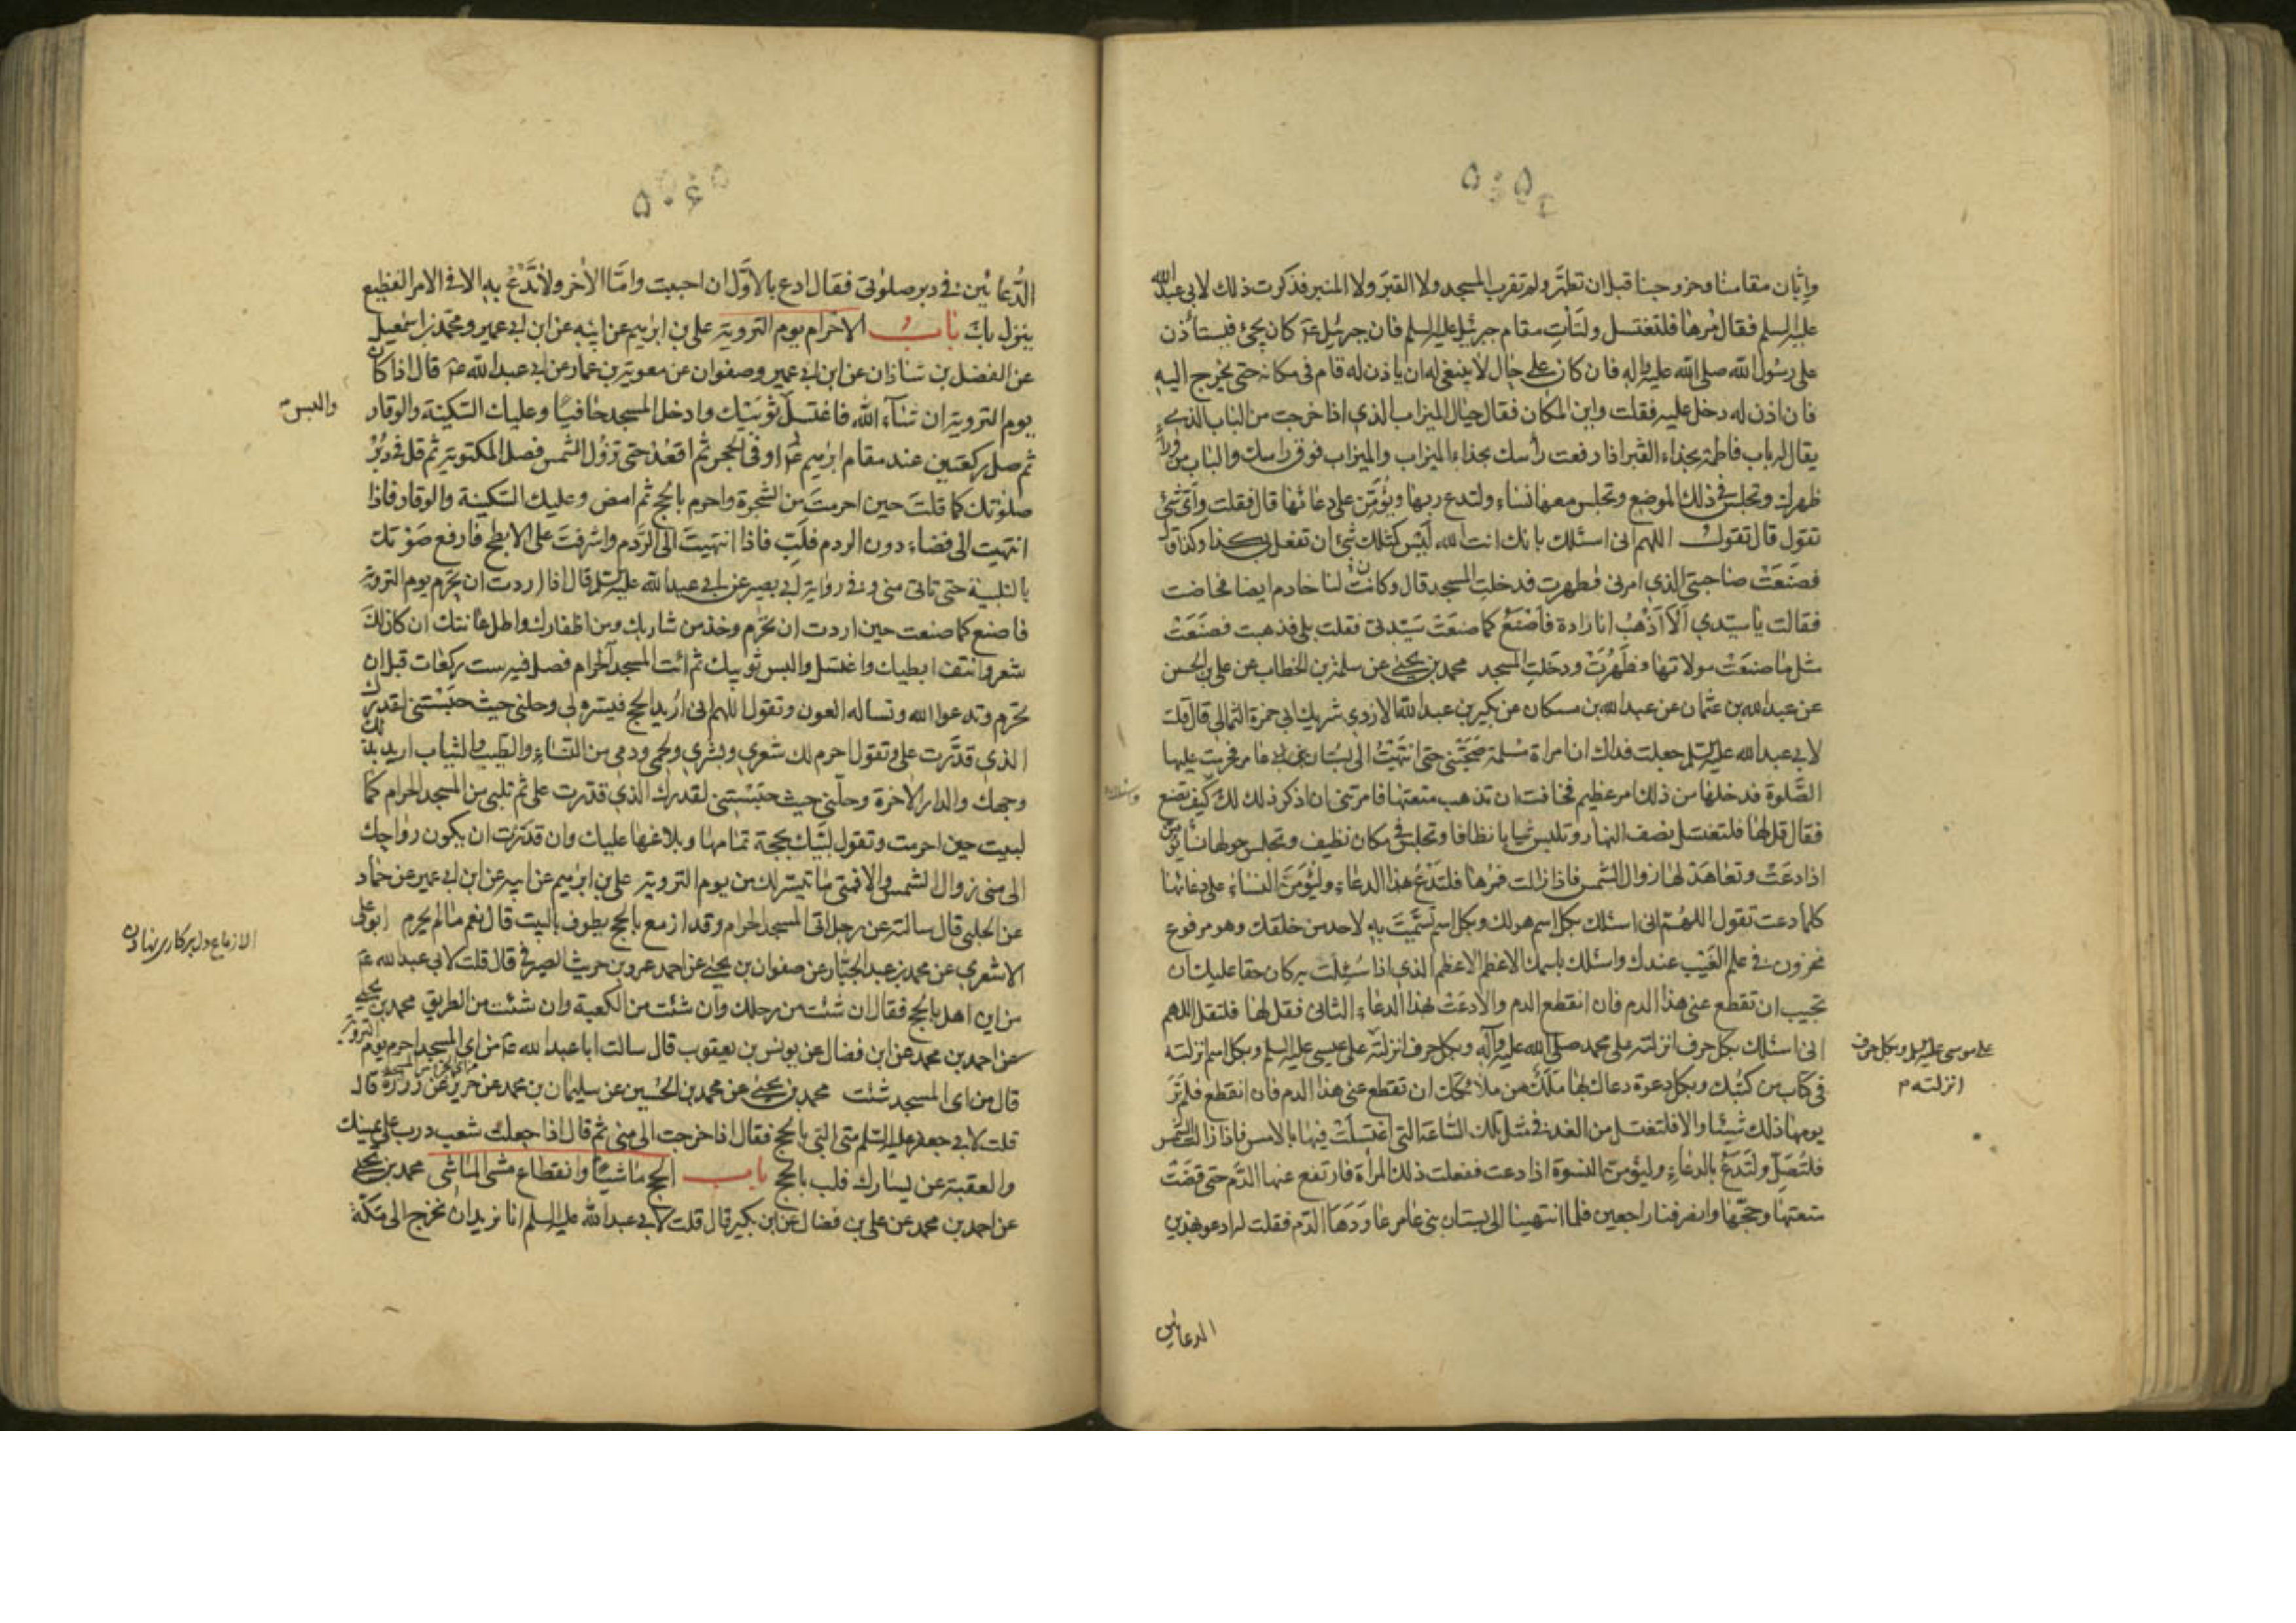 وابان مقامنا وخروجنا قبل ان تطهر ولم تقرب المسجد ولا القبر ولا المنبر فذكرت ذلك لابي عبد الله
عليه السلم فقال مرها فلتغتسل ولتات مقام جبرئيل عليه السلم فان جبرئيل ع كان يجئ فيستأذن
على رسول الله صلى الله عليه واله فان كان على حال لا ينبغي له ان ياذن له قام في مكانه حتى يخرج اليه
فان اذن له دخل عليه فقلت واين المكان فقال حيال الميزاب الذي اذا خرجت من الباب الذي
يقال له باب فاطمة بحذاء القبر اذا رفعت رأسك بحذاء الميزاب والميزاب فوق راسك والباب من وراء
ظهرك وتجلس في ذلك الموضع وتجلس معها نساء ولتدع ربها ويؤمّن على دعائها قال فقلت واى شئ
تقول قال تقول اللهم انى اسئلك بانك انت الله ليس كمثلك شئ ان تفعل بى كذا وكذا قال
فصنعت صاحبتى الذي امرنى فطهرت فدخلت المسجد قال وكانت لنا خادم ايضا فحاضت
فقالت يا سيدي الا اذهب انا زادة فاصنع كما صنعت سيدتى فقلت بلى فذهبت فصنعت
مثل ما صنعت مولاتها فطهرت ودخلت المسجد محمد بن يحيى عن سلمة بن الخطاب عن على بن الحسن
عن عبد الله بن عثمان عن عبد الله بن مسكان عن بكير بن عبد الله الازدي شريك ابى حمزة الثمالى قال قلت
لابى عبد الله عليه السلم جعلت فداك ان امراة مسلمة صحبتنى حتى انتهيت الى بستان بنى عامر فحرمت عليها
الصلوة فدخلها من ذلك امر عظيم فخافت ان تذهب متعتها فامرتنى ان اذكر ذلك لك كيف تصنع
فقال قل لها فلتغتسل نصف النهار وتلبس ثيابا نظافا وتجلس في مكان نظيف وتجلس حولها نساء يؤمن
اذا دعت وتعاهد لها زوال الشمس فاذا زالت فمرها فلتدع بهذا الدعاء وليؤمن النساء على دعائها
كلما دعت تقول اللهم انى اسئلك بكل اسم هو لك وبكل اسم تسميت به لاحد من خلقك وهو مرفوع
مخزون في علم الغيب عندك واسئلك باسمك الاعظم الاعظم الذي اذا سئلت به كان حقا عليك ان
تجيب ان تقطع عنى هذا الدم فان انقطع الدم والا دعت بهذا الدعاء الثانى فقل لها فلتقل اللهم
انى اسئلك بكل حرف انزلته على محمد صلى الله عليه وآله وبكل حرف انزلته على عيسى عليه السلم وبكل اسم انزلته
على موسى عليه السلم وبكل حرف
انزلته م
فى كتاب من كتبك وبكل دعوة دعاك بها ملك من ملائكتك ان تقطع عنى هذا الدم فان انقطع فلم تر
يومها ذلك شيئا والا فلتغتسل من الغد فى مثل تلك الساعة التى اغتسلت فيها بالامس فاذا زالت الشمس
فلتصل ولتدع بالدعاء وليؤمن النسوة اذا دعت ففعلت ذلك المرأة فارتفع عنها الدم حتى قضت
متعتها وحجها وانصرفنا راجعين فلما انتهينا الى بستان بنى عامر عاودها الدم فقلت له ادعو بهذين
الدعائين
الدعائين في دبر صلوتى فقال ادع بالاول ان احببت واما الاخر فلا تدع به الا فى الامر الفظيع
ينزل بك باب الاحرام يوم التروية على بن ابرهيم عن ابيه عن ابن ابى عمير ومحمد بن اسمعيل
عن الفضل بن شاذان عن ابن ابى عمير وصفوان عن معوية بن عمار عن ابى عبد الله ع قال اذا كان
يوم التروية ان شآء الله فاغتسل ثوبيك وادخل المسجد حافيا وعليك السكينة والوقار
والبس
ثم صل ركعتين عند مقام ابرهيم ع او فى الحجر ثم اقعد حتى تزول الشمس فصل المكتوبة ثم قل فى دبر
صلوتك كما قلت حين احرمت من الشجرة واحرم بالحج ثم امض وعليك السكينة والوقار فاذا
انتهيت الى فضاء دون الردم فلب فاذا انتهيت الى الردم واشرفت على الابطح فارفع صوتك
بالتلبية حتى تاتى منى وفى رواية ابى بصير عن ابى عبد الله عليه السلم قال اذا اردت ان تحرم يوم التروية
فاصنع كما صنعت حين اردت ان تحرم وخذ من شاربك ومن اظفارك واطل عانتك ان كان لك
شعر وانتف ابطيك واغتسل والبس ثوبيك ثم ائت المسجد الحرام فصل فيه ست ركعات قبل ان
تحرم وتدعوا الله وتساله العون وتقول اللهم انى اريد الحج فيسره لى وحلنى حيث حبستنى لقدرك
الذي قدرت على وتقول احرم لك شعري وبشري ولحمى ودمى من النساء والطيب والثياب اريد بذلك
وجهك والدار الاخرة وحلنى حيث حبستنى لقدرك الذي قدرت على ثم تلبى من المسجد الحرام كما
لبيت حين احرمت وتقول لبيك بحجة تمامها وبلاغها عليك وان قدرت ان يكون رواحك
الى منى زوال الشمس والا فمتى ما تيسر لك من يوم التروية على بن ابرهيم عن ابيه عن ابن ابى عمير عن حماد
عن الحلبى قال سالته عن رجل اتى المسجد الحرام وقد ازمع بالحج يطوف بالبيت قال نعم ما لم يحرم ابو على
الاشعري عن محمد بن عبد الجبار عن صفوان بن يحيى عن احمد عمرو بن حريث الصيرفى قال قلت لابى عبد الله ع
من اين اهل بالحج فقال ان شئت من رحلك وان شئت من الكعبة وان شئت من الطريق محمد بن يحيى
عن احمد بن محمد عن ابن فضال عن يونس بن يعقوب قال سالت ابا عبد الله ع من اى المسجد احرم يوم التروية
قال من اى المسجد شئت محمد بن يحيى عن محمد بن الحسين عن سليمان بن محمد عن حريز عن زرارة قال
قلت لابى جعفر عليه السلم متى البى بالحج فقال اذا خرجت الى منى ثم قال اذا جعلت شعب درب على يمينك
والعقبة عن يسارك فلب بالحج باب الحج ماشيا وانقطاع مشى الماشى محمد بن يحيى
عن احمد بن محمد عن على بن فضال عن ابن بكير قال قلت لابى عبد الله عليه السلم انا نريد ان نخرج الى مكة